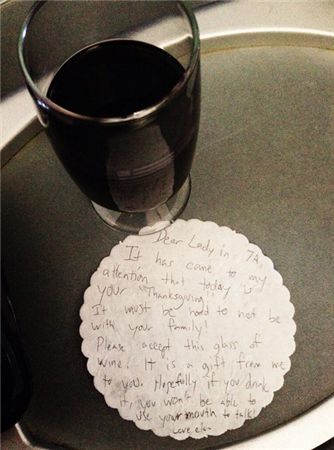 Dear Lady in 7A,
It has come to my
attention that today is
your "Thanksgiving"!
It must be hard to not be
with your family!
Please accept this glass of
wine! It is a gift from me
to you. Hopefully if you drink
it, you won't be able to
use your mouth to talk!
Love